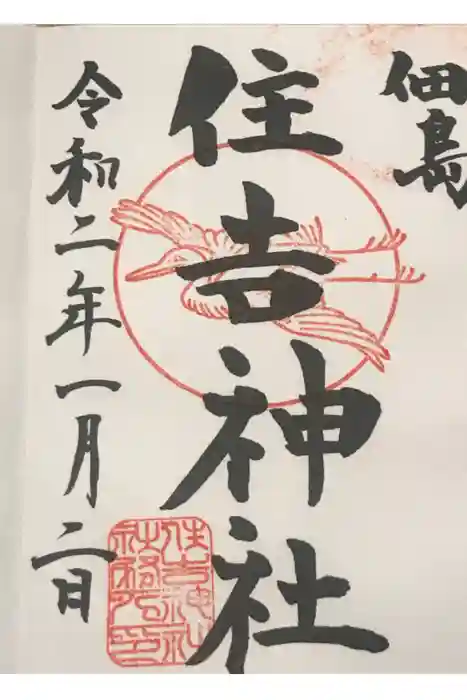 佃島
住吉神社
令和二年一月二日
住吉神社
社務所印